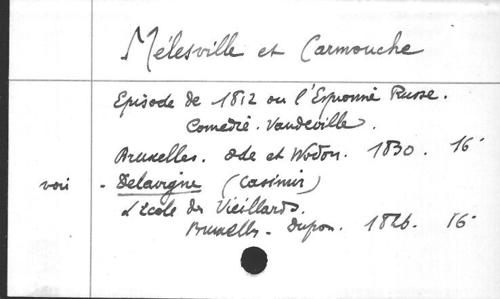 Mélesville et Carmouche
Episode de 1812 ou l'Espionne Russe.
Comedie. Vaudeville.
Bruxelles. Ode et Wodon. 1830. 16°
voir - Delavigne (Casimir)
L'Ecole des Vieillards.
Bruxelles - Dupon. 1826. 16°